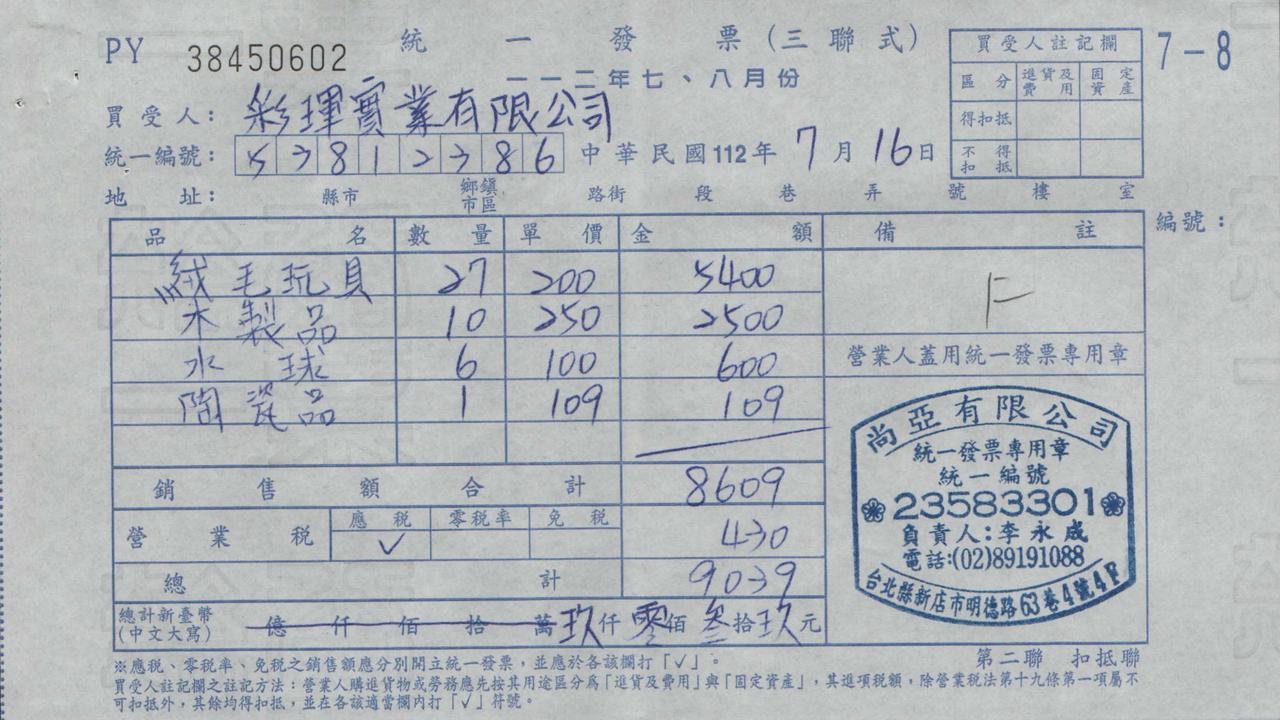 PY 38450602 統一發票(三聯式) 7-8
一一二年七、八月份
買受人註記欄
區分 進貨及費用 固定資產
得扣抵
不得扣抵
買受人: 彩琿實業有限公司
統一編號: 53812386 中華民國112年7月16日
地址: 縣市 鄉鎮市區 路街 段 巷 弄 號 樓 室
編號:
品名 數量 單價 金額 備註
絨毛玩具 27 200 5400
木製品 10 250 2500
水球 6 100 600
陶瓷品 1 109 109
營業人蓋用統一發票專用章
銷售額合計 8609
營業稅 應稅 ✓ 零稅率 免稅 430
總計 9039
總計新臺幣(中文大寫) 億仟佰拾萬玖仟零佰叁拾玖元
尚亞有限公司
統一發票專用章
統一編號
23583301
負責人:李永成
電話:(02)89191088
台北縣新店市明德路63巷4號4F
第二聯 扣抵聯
※應稅、零稅率、免稅之銷售額應分別開立統一發票,並應於各該欄打「✓」。
買受人註記欄之註記方法:營業人購進貨物或勞務應先按其用途區分為「進貨及費用」與「固定資產」,其進項稅額,除營業稅法第十九條第一項屬不
可扣抵外,其餘均得扣抵,並在各該適當欄內打「✓」符號。